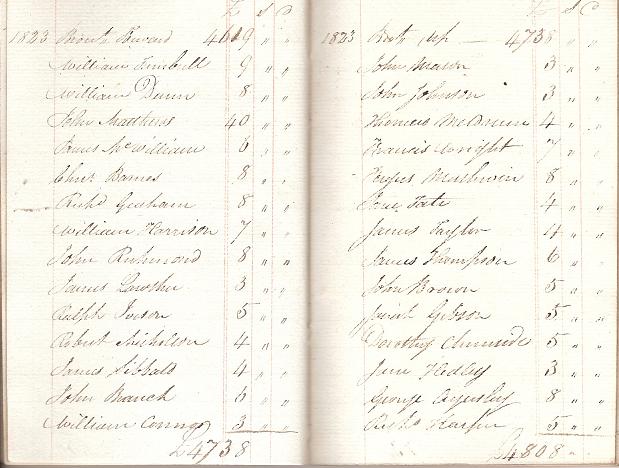 £ S D
1823 Brout Forward 4619 " "
William Turnbull 9 " "
William Dunn 8 " "
John Matthews 40 " "
James McWilliam 6 " "
Chris Barnes 8 " "
Richd Graham 8 " "
William Harrison 7 " "
John Richmond 8 " "
James Lowther 3 " "
Ralph 5 " "
Robert Nicholson 4 " "
James Sibbald 4 " "
John Branch 6 " "
William Connor 3 " "
£4738
£ S D
1823 Brot up — 4738 " "
John Mason 3 " "
John Johnson 3 " "
Thomas 4 " "
Francis Wright 7 " "
8 " "
Tate 4 " "
James Taylor 4 " "
James Thompson 6 " "
John Brown 5 " "
Gibson 5 " "
Dorothy 5 " "
Jane Hedley 3 " "
George 8 " "
Richd 5 " "
£4808 "